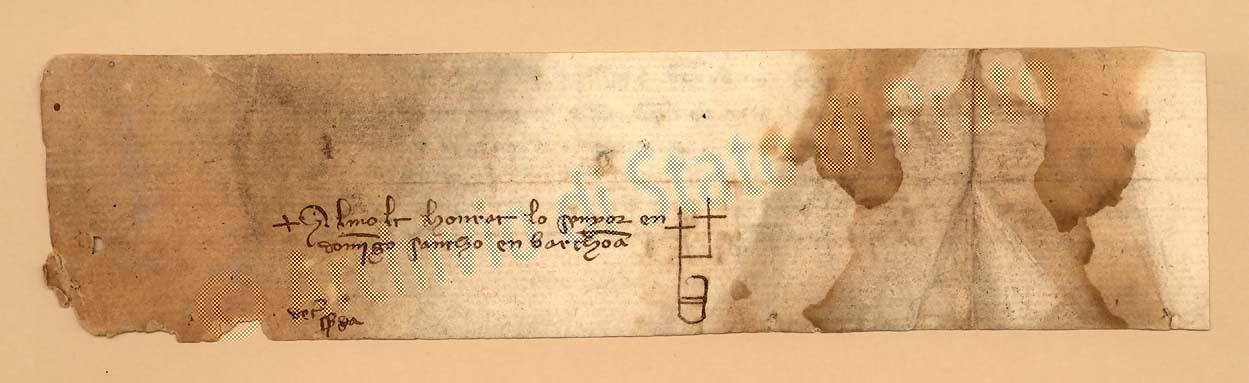 + Al molt honrat lo senyor en
domigo sancho en barchõa
© Archivio di Stato di Prato